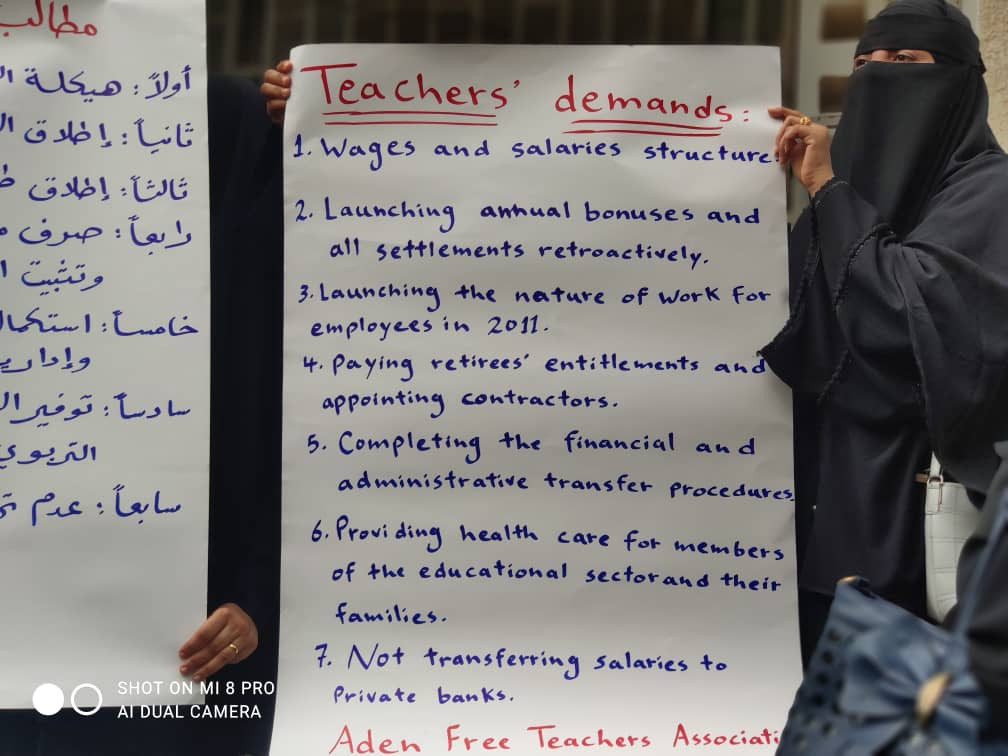 مطالب
أولاً: هيكلة
ثانياً: إطلاق
ثالثاً: إطلاق
رابعاً: صرف
وتثبيت
خامساً:
سادساً: توفير
سابعاً: عدم
Teachers' demands:
1. Wages and salaries structure.
2. Launching annual bonuses and
all settlements retroactively.
3. Launching the nature of work for
employees in 2011.
4. Paying retirees' entitlements and
appointing contractors.
5. Completing the financial and
administrative transfer procedures.
6. Providing health care for members
of the educational sector and their
families.
7. Not transferring salaries to
Private banks.
Aden Free Teachers Associati
SHOT ON MI 8 PRO
AI DUAL CAMERA